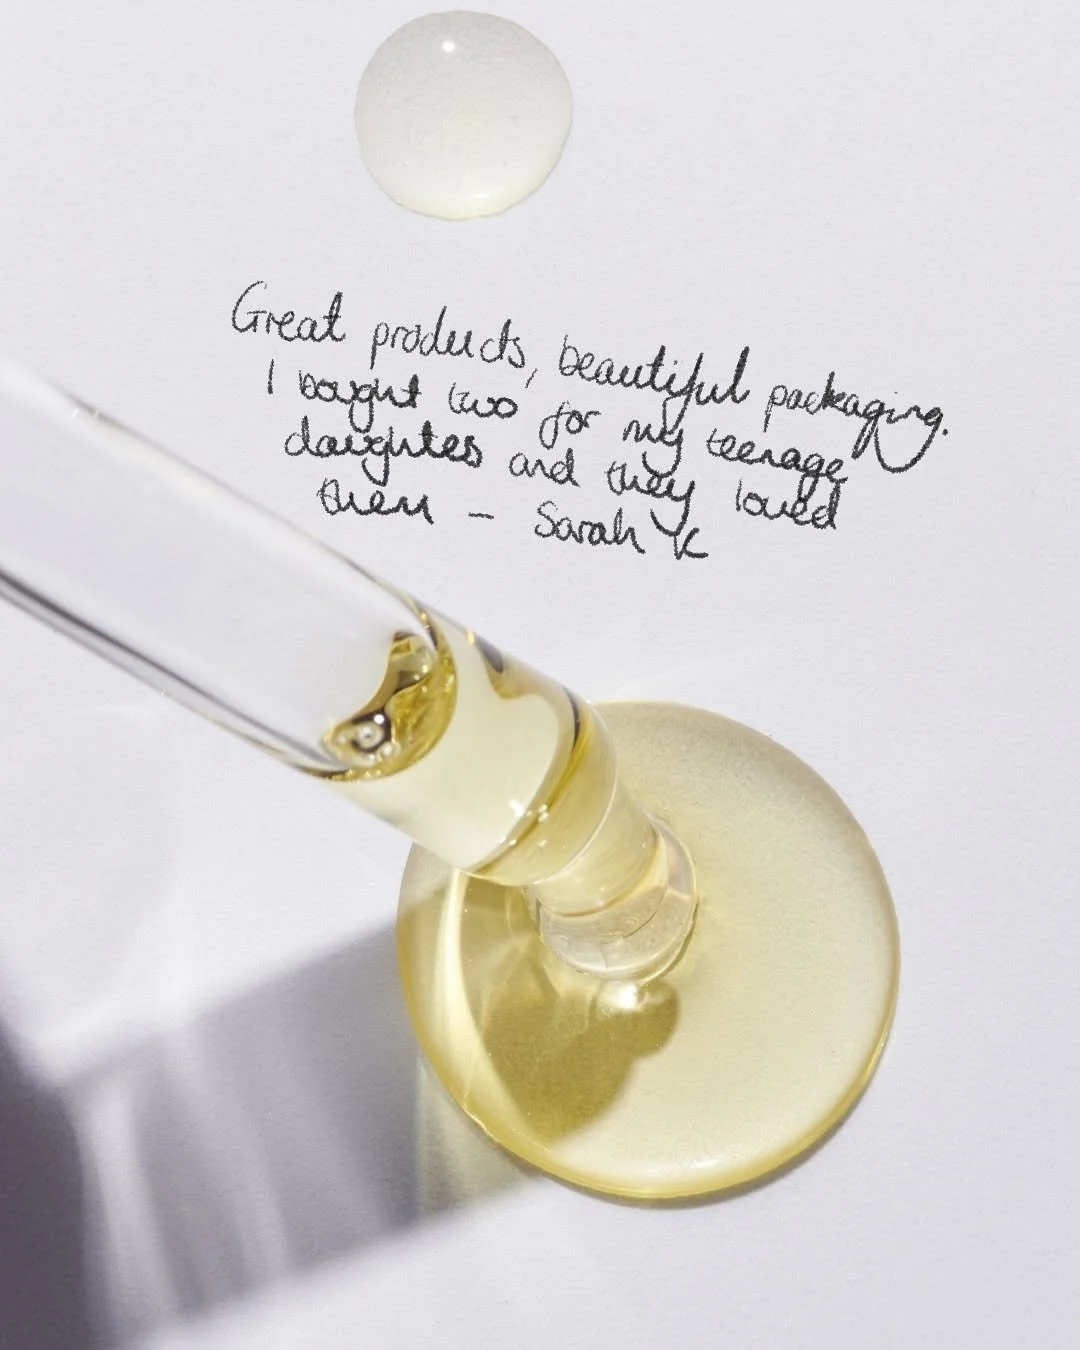 Great products, beautiful packaging.
I bought two for my teenage
daughtes and they loved
them - Sarah K